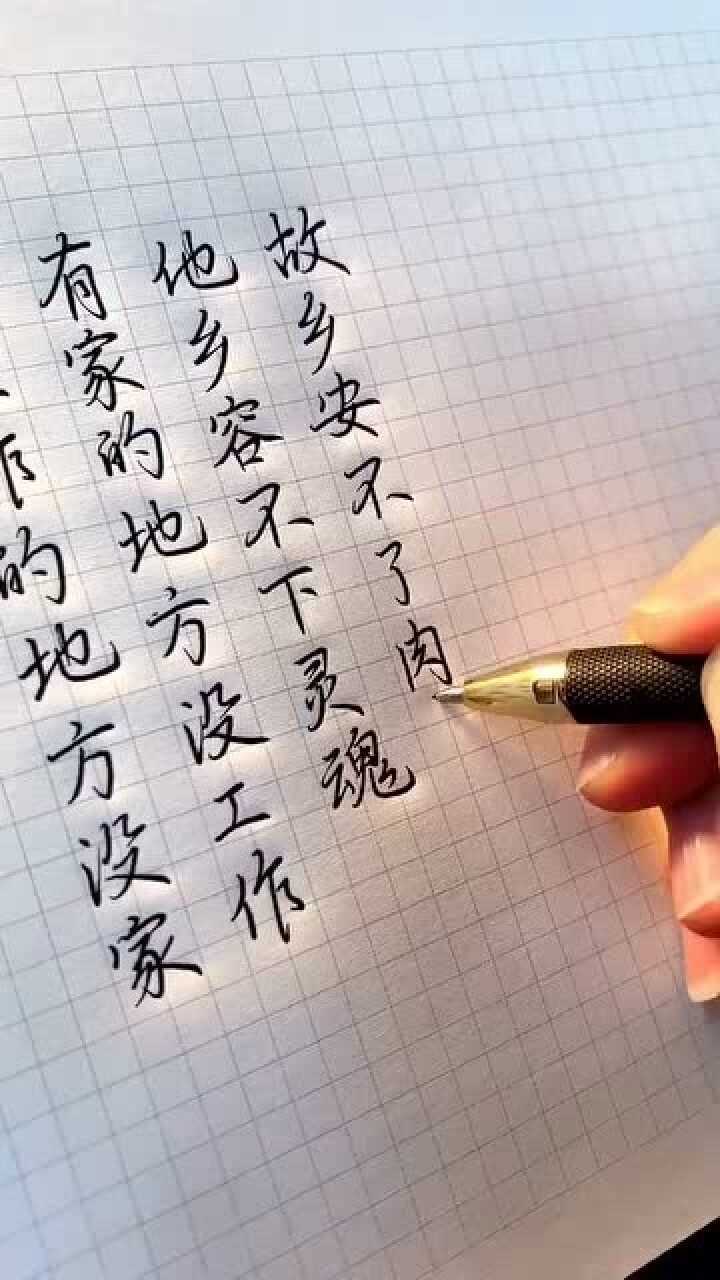 作的地方没家
有家的地方没工作
他乡容不下灵魂
故乡安不了肉